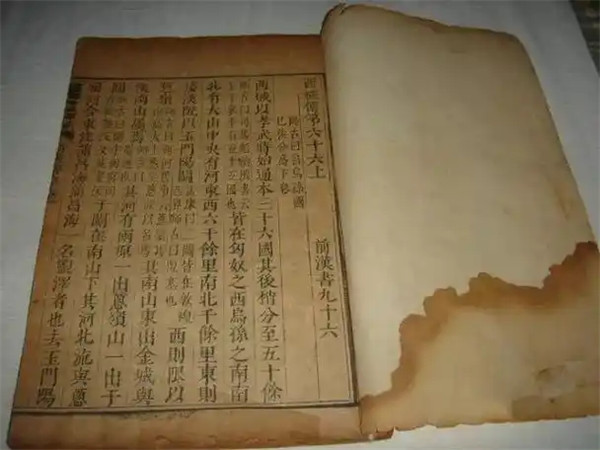 西域傳第六十六上
師古曰自烏孫國
已後分爲下卷
前漢書九十六
西域以孝武時始通本三十六國其後稍分至五十餘
皆在匈奴之西烏孫之南南
北有大山中央有河東西六千餘里南北千餘里東則
接漢阸以玉門陽關
孟康曰二關皆在敦煌
西界師古曰阸塞也
西則限以
其南山東出金城與
漢南山屬焉
其河有兩原一出蔥嶺山一出于
于闐在南山下其河北流與蔥
嶺河合東注蒲昌海蒲昌海一名鹽澤者也去玉門陽